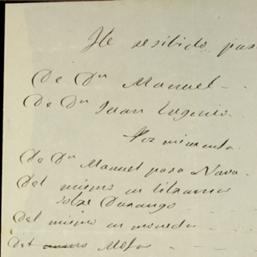 He resibido pa
De Dn Manuel
De Dn Juan Eugenio
Por mimenta
De Dn Manuel para Nava
Del mismo en libramto
sobre Durango
Del mismo en moneda
Del mismo